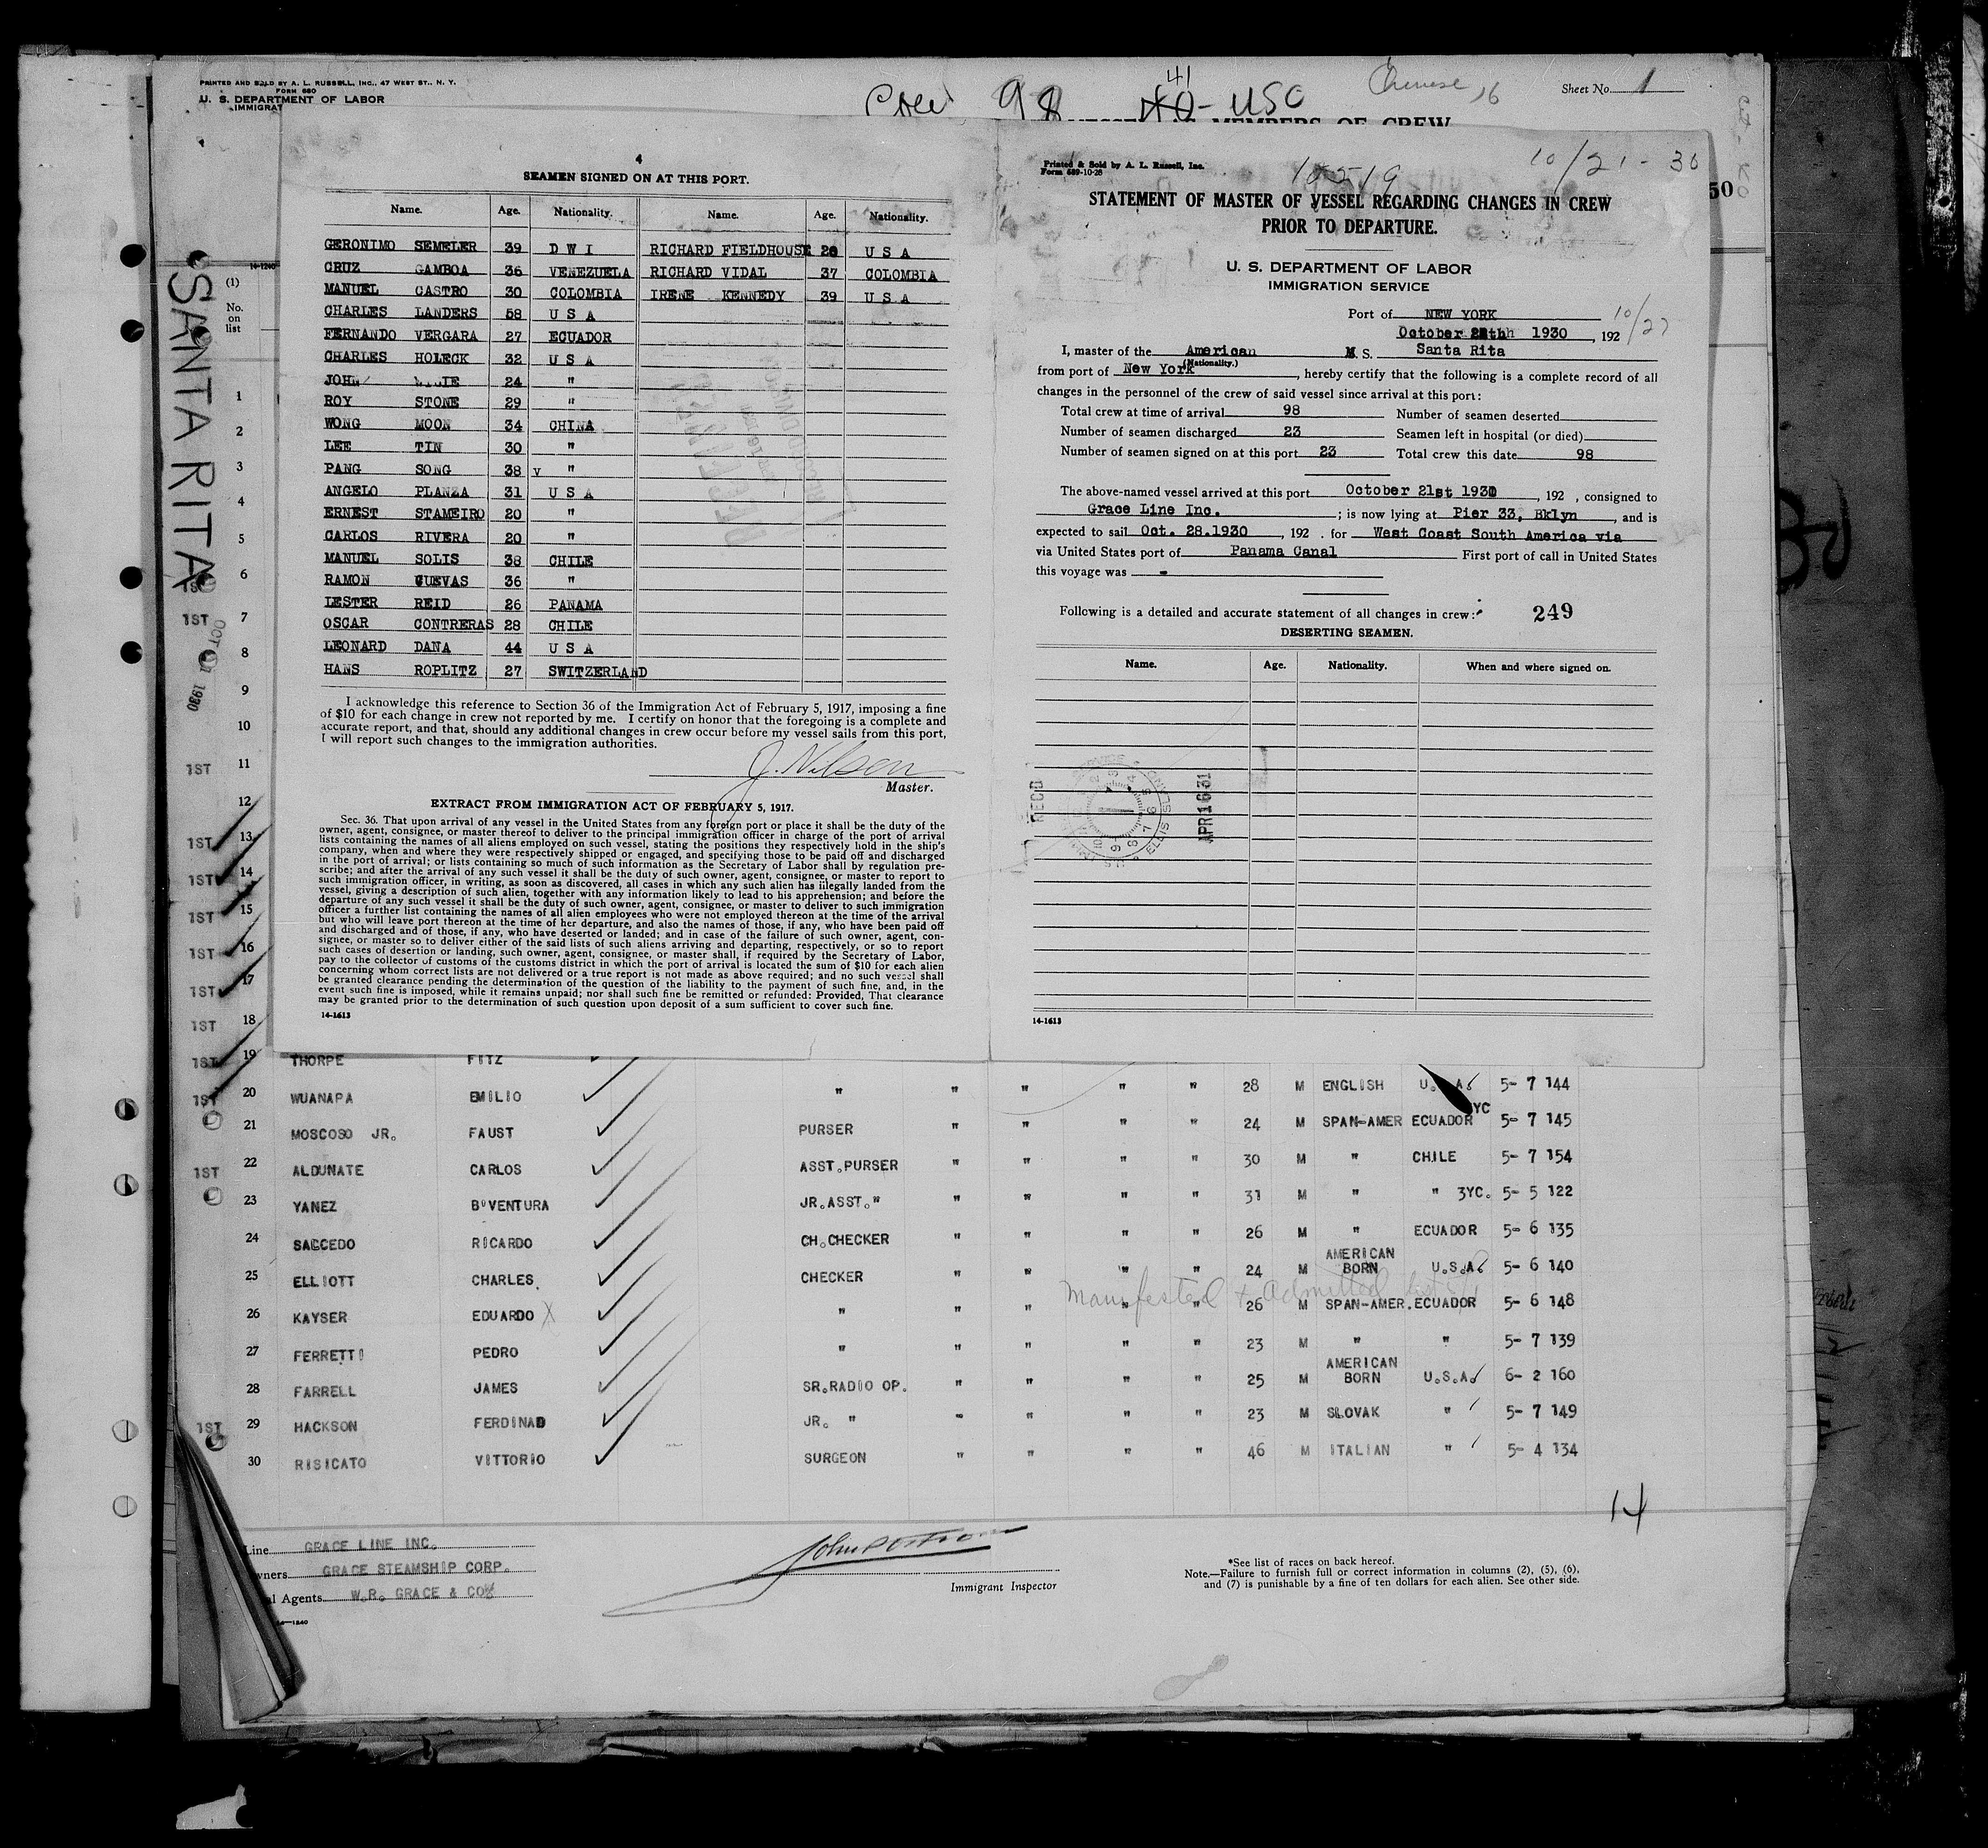 PRINTED AND SOLD BY A. L. RUSSELL, INC., 47 WEST ST., N. Y.
FORM 680
U. S. DEPARTMENT OF LABOR
IMMIGRAT
Crew 98 41 40 - USC
Chinese 16
Sheet No. 1
MEMBERS OF CREW
50
SANTA RITA
14-1240
(1)
No.
on
list
4
SEAMEN SIGNED ON AT THIS PORT.
Name. Age. Nationality. Name. Age. Nationality.
GERONIMO SEMELER 39 D W I RICHARD FIELDHOUSE 28 U S A
CRUZ GAMBOA 36 VENEZUELA RICHARD VIDAL 37 COLOMBIA
MANUEL CASTRO 30 COLOMBIA IRENE KENNEDY 39 U S A
CHARLES LANDERS 58 U S A
FERNANDO VERGARA 27 ECUADOR
CHARLES HOLECK 32 U S A
JOHN 24 "
ROY STONE 29 "
WONG MOON 34 CHINA
LEE TIN 30 "
PANG SONG 38 v "
ANGELO PLANZA 31 U S A
ERNEST STAMEIRO 20 "
CARLOS RIVERA 20 "
MANUEL SOLIS 38 CHILE
RAMON CUEVAS 36 "
LESTER REID 26 PANAMA
OSCAR CONTRERAS 28 CHILE
LEONARD DANA 44 U S A
HANS ROPLITZ 27 SWITZERLAND
I acknowledge this reference to Section 36 of the Immigration Act of February 5, 1917, imposing a fine
of $10 for each change in crew not reported by me. I certify on honor that the foregoing is a complete and
accurate report, and that, should any additional changes in crew occur before my vessel sails from this port,
I will report such changes to the immigration authorities.
J. Nilsen
Master.
EXTRACT FROM IMMIGRATION ACT OF FEBRUARY 5, 1917.
Sec. 36. That upon arrival of any vessel in the United States from any foreign port or place it shall be the duty of the
owner, agent, consignee, or master thereof to deliver to the principal immigration officer in charge of the port of arrival
lists containing the names of all aliens employed on such vessel, stating the positions they respectively hold in the ship's
company, when and where they were respectively shipped or engaged, and specifying those to be paid off and discharged
in the port of arrival; or lists containing so much of such information as the Secretary of Labor shall by regulation pre-
scribe; and after the arrival of any such vessel it shall be the duty of such owner, agent, consignee, or master to report to
such immigration officer, in writing, as soon as discovered, all cases in which any such alien has illegally landed from the
vessel, giving a description of such alien, together with any information likely to lead to his apprehension; and before the
departure of any such vessel it shall be the duty of such owner, agent, consignee, or master to deliver to such immigration
officer a further list containing the names of all alien employees who were not employed thereon at the time of the arrival
but who will leave port thereon at the time of her departure, and also the names of those, if any, who have been paid off
and discharged and of those, if any, who have deserted or landed; and in case of the failure of such owner, agent, con-
signee, or master so to deliver either of the said lists of such aliens arriving and departing, respectively, or so to report
such cases of desertion or landing, such owner, agent, consignee, or master shall, if required by the Secretary of Labor,
pay to the collector of customs of the customs district in which the port of arrival is located the sum of $10 for each alien
concerning whom correct lists are not delivered or a true report is not made as above required; and no such vessel shall
be granted clearance pending the determination of the question of the liability to the payment of such fine, and, in the
event such fine is imposed, while it remains unpaid; nor shall such fine be remitted or refunded: Provided, That clearance
may be granted prior to the determination of such question upon deposit of a sum sufficient to cover such fine.
14-1613
Printed & Sold by A. L. Russell, Inc.
Form 689-10-28
10519
10/21-30
STATEMENT OF MASTER OF VESSEL REGARDING CHANGES IN CREW
PRIOR TO DEPARTURE.
U. S. DEPARTMENT OF LABOR
IMMIGRATION SERVICE
Port of NEW YORK
October 28th 1930, 192 10/27
I, master of the American M. S. Santa Rita
(Nationality.)
from port of New York, hereby certify that the following is a complete record of all
changes in the personnel of the crew of said vessel since arrival at this port:
Total crew at time of arrival 98 Number of seamen deserted
Number of seamen discharged 23 Seamen left in hospital (or died)
Number of seamen signed on at this port 23 Total crew this date 98
The above-named vessel arrived at this port October 21st 1930, 192 , consigned to
Grace Line Inc. ; is now lying at Pier 33, Bklyn, and is
expected to sail Oct. 28.1930, 192 . for West Coast South America via
via United States port of Panama Canal First port of call in United States
this voyage was -
Following is a detailed and accurate statement of all changes in crew:
249
DESERTING SEAMEN.
Name. Age. Nationality. When and where signed on.
REC'D
APR 16 31
ELLIS ISLAND
14-1613
1
2
3
4
5
1ST 6
1ST 7
OCT 21 1930
8
9
10
1ST 11
12
1ST 13
1ST 14
1ST 15
1ST 16
1ST 17
1ST 18
1ST 19 THORPE FITZ
1ST 20 WUANAPA EMILIO " " " " " 28 M ENGLISH U.S.A. 5- 7 144
21 MOSCOSO JR. FAUST PURSER " " " " 24 M SPAN-AMER ECUADOR YC 5- 7 145
1ST 22 ALDUNATE CARLOS ASST.PURSER " " " " 30 M " CHILE 5- 7 154
23 YANEZ B.VENTURA JR.ASST." " " " " 31 M " " 3YC. 5- 5 122
24 SALCEDO RICARDO CH.CHECKER " " " " 26 M " ECUADOR 5- 6 135
25 ELLIOTT CHARLES. CHECKER " " " " 24 M AMERICAN BORN U.S.A. 5- 6 140
Manifested & Admitted
26 KAYSER EDUARDO X " " " " " 26 M SPAN-AMER. ECUADOR 5- 6 148
27 FERRETTI PEDRO " " " " " 23 M " " 5- 7 139
28 FARRELL JAMES SR.RADIO OP. " " " " 25 M AMERICAN BORN U.S.A. 6- 2 160
1ST 29 HACKSON FERDINAD JR. " " " " " 23 M SLOVAK " 5- 7 149
30 RISICATO VITTORIO SURGEON " " " " 46 M ITALIAN " 5- 4 134
14
Line GRACE LINE INC.
wners GRACE STEAMSHIP CORP.
al Agents W.R. GRACE & CO
14-1240
Immigrant Inspector
*See list of races on back hereof.
Note.—Failure to furnish full or correct information in columns (2), (5), (6),
and (7) is punishable by a fine of ten dollars for each alien. See other side.